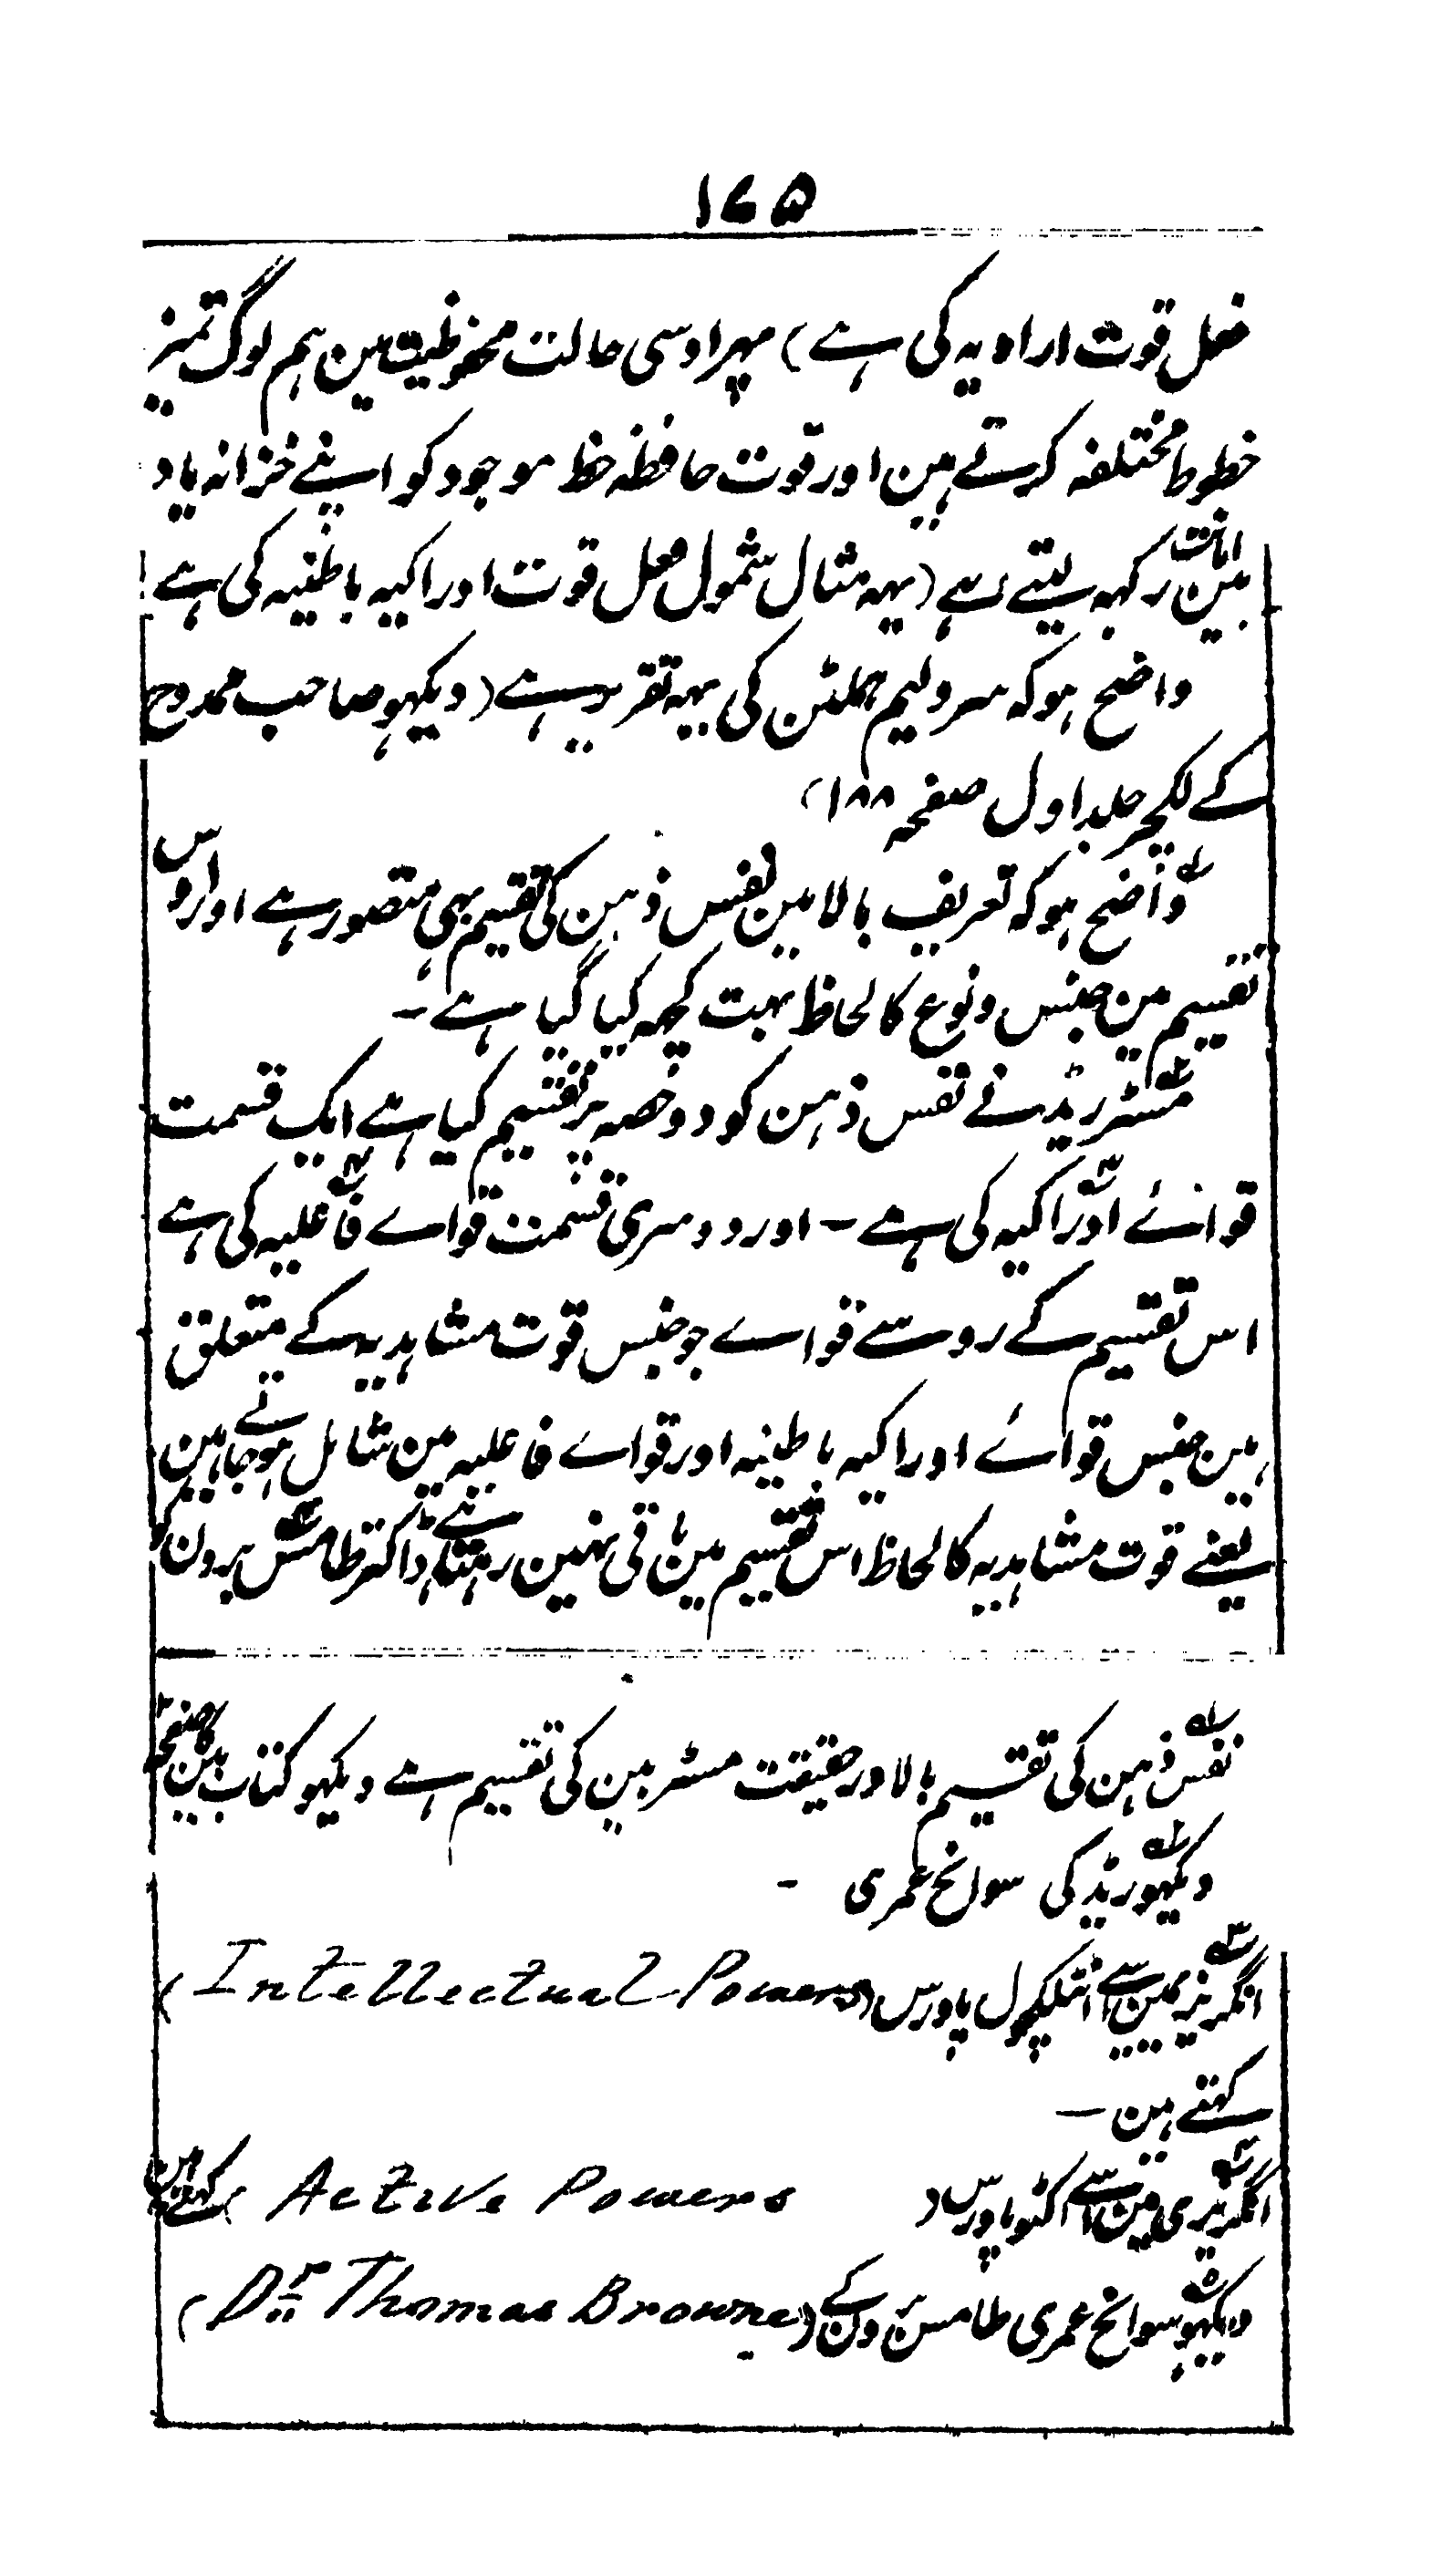 ۱۷۵
فعل قوت ارادیہ کی ہے) پہر اوسی حالت محظوظیت مین ہم لوگ تمیز
خطوط مختلفہ کرتے ہین اور قوت حافظہ حظ موجود کو اپنے خزانہ یاد
مین امانت رکہہ لیتے ہے (یہہ مثال شمول فعل قوت ادراکیہ باطنیہ کی ہے)
واضح ہو کہ سر ولیم ہملٹن کی یہہ تقریر ہے (دیکہو صاحب ممدوح
کے لکچر جلد اول صفحہ ۱۸۸)
واضح ہو کہ تعریف بالا مین نفس ذہن کی تقسیم بہی متصور ہے اور اوس
تقسیم مین جنس و نوع کا لحاظ بہت کچہہ کیا گیا ہے ۔
مسٹر ریڈ نے نفس ذہن کو دو حصہ پر تقسیم کیا ہے ایک قسمت
قوائے ادراکیہ کی ہے ۔ اور دوسری قسمت قواے فاعلیہ کی ہے
اس تقسیم کے رو سے قواے جو جنس قوت مشاہدیہ کے متعلق
ہین جنس قوائے ادراکیہ باطنیہ اور قواے فاعلیہ مین شامل ہو جاتے ہین
یعنے قوت مشاہدیہ کا لحاظ اس تقسیم مین باقی نہین رہتا ڈاکتر طامس برون
نفس ذہن کی تقسیم بالا در حقیقت مسٹر بین کی تقسیم ہے دیکہو کتاب بین کا صفحہ
دیکہو ریڈ کی سوانح عمری ۔
انگریزی مین اسے انٹلکچول پاورس (Intellectual Powers)
کہتے ہین ۔
انگریزی مین اسے اکٹو پاورس (Active Powers کہتے ہین
دیکہو سوانح عمری طامس برون کے (Dr Thomas Browne)